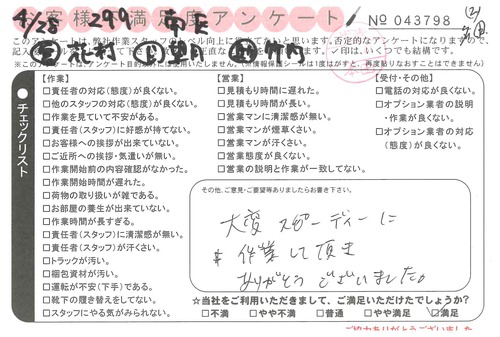 お客様満足度アンケート
4/28 299 南区
No 043798
このアンケートは、弊社作業スタッフのレベル向上に役立てたいと思います。否定的なアンケートになりますので、
□責任者の対応(態度)が良くない。
□他のスタッフの対応(態度)が良くない。
□作業を見ていて不安がある。
□責任者(スタッフ)に好感が持てない。
□お客様への挨拶が出来ていない。
□ご近所への挨拶・気遣いが無い。
□作業開始前の内容確認がなかった。
□作業開始時間が遅れた。
□荷物の取り扱いが雑である。
□お部屋の養生が出来ていない。
□作業時間が長すぎる。
□責任者(スタッフ)に清潔感が無い。
□責任者(スタッフ)が汗くさい。
□トラックが汚い。
□梱包資材が汚い。
□運転が不安(下手)である。
□靴下の履き替えをしてない。
□スタッフにやる気がみられない。
チェックリスト
【作業】
【営業】
□見積もり時間に遅れた。
□見積もり時間が長い。
□営業マンに清潔感が無い。
□営業マンが煙草くさい。
□営業マンが汗くさい。
□営業態度が良くない。
□営業の説明と作業が一致してない。
【受付・その他】
□電話の対応が良くない。
□オプション業者の説明
・作業が良くない。
□オプション業者の対応
(態度)が良くない。
その他、ご意見・ご要望等ありましたらお書き下さい。
大変 スピーディーに
作業して頂き
ありがとう ございました。
☆当社をご利用いただきまして、ご満足いただけたでしょうか?
□不満 □やや不満 □普通 □やや満足 ☑満足
ご協力ありがとうございました